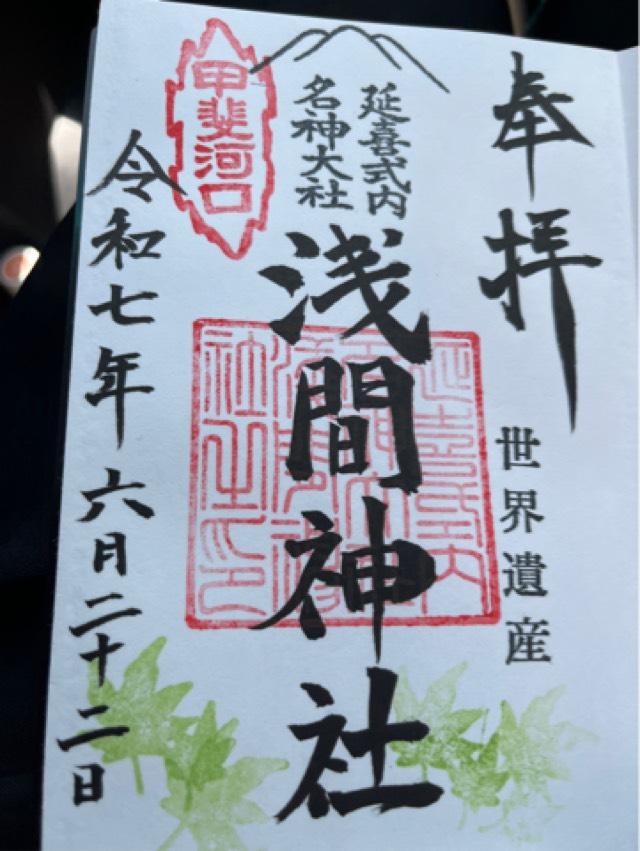 奉拝
世界遺産
延喜式内
名神大社
浅間神社
甲斐河口
令和七年六月二十二日